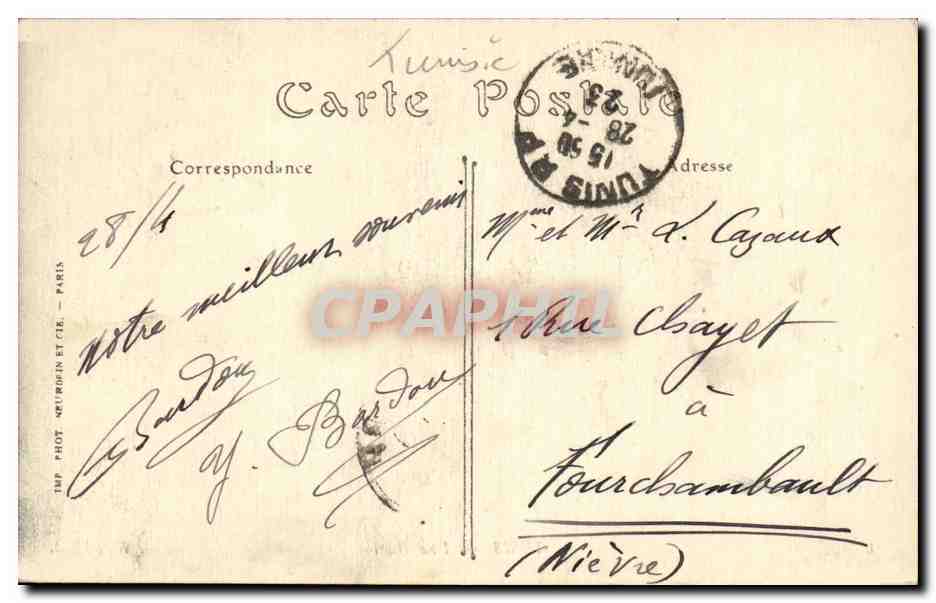 Tunisie
Carte Postale
TUNIS R P
15 50
28 -4
23
Correspondance
Adresse
28/4
Notre meilleur souvenir
Bardou
Y. Bardou
Mme et Mr L. Cazaux
1 Rue Chayet
à
Fourchambault
(Nièvre)
IMP. PHOT. NEURDEIN ET CIE. — PARIS
CPAPHIL